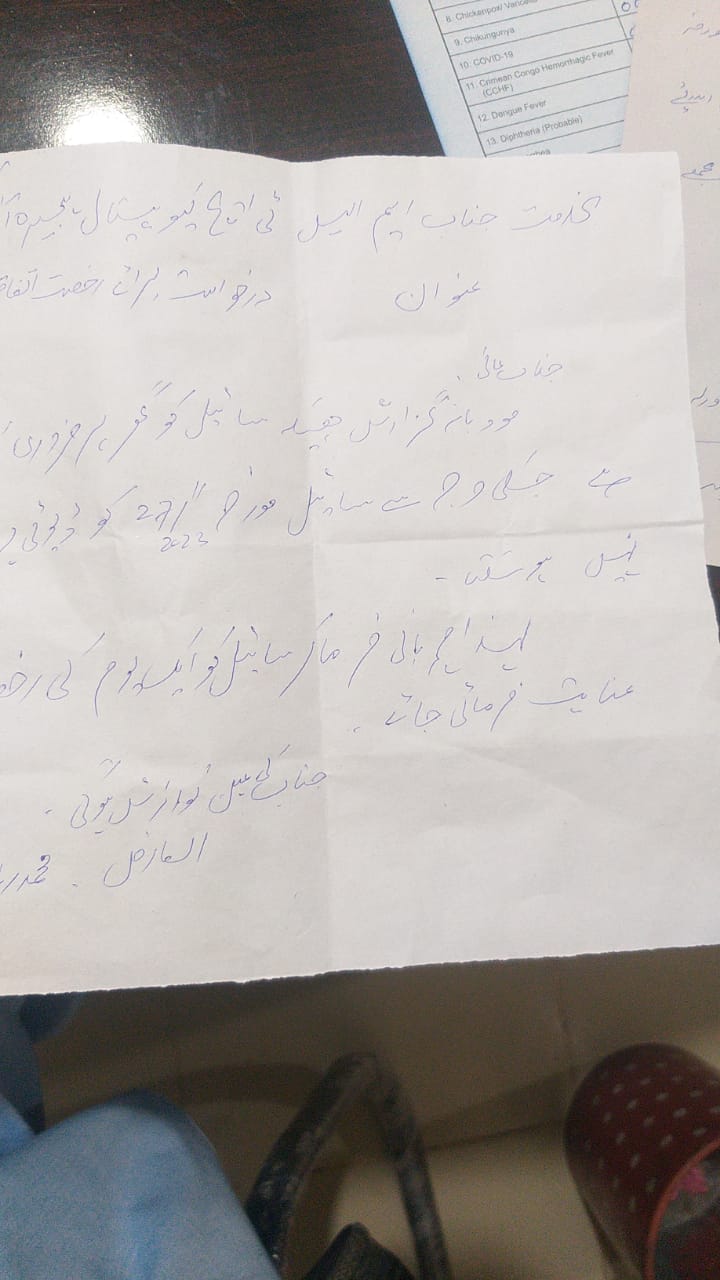 8. Chickenpox/ Varicella
9. Chikungunya
10. COVID-19
11. Crimean Congo Hemorrhagic Fever
(CCHF)
12. Dengue Fever
13. Diphtheria (Probable)
بخدمت جناب ایم ایس ٹی ایچ کیو ہسپتال
عنوان درخواست برائے رخصت
جناب عالی
مودبانہ گزارش ہیکہ سائیل کو گھر پر ضروری
ہے جسکی وجہ سے سائیل مورخہ 27/11 2023 کو ڈیوٹی
نہیں ہو سکتا -
لہذا مہربانی فرما کر سائیل کو ایک یوم کی
عنایت فرمائی جائے .
جناب کی عین نوازش ہوگی -
العارض . محمد